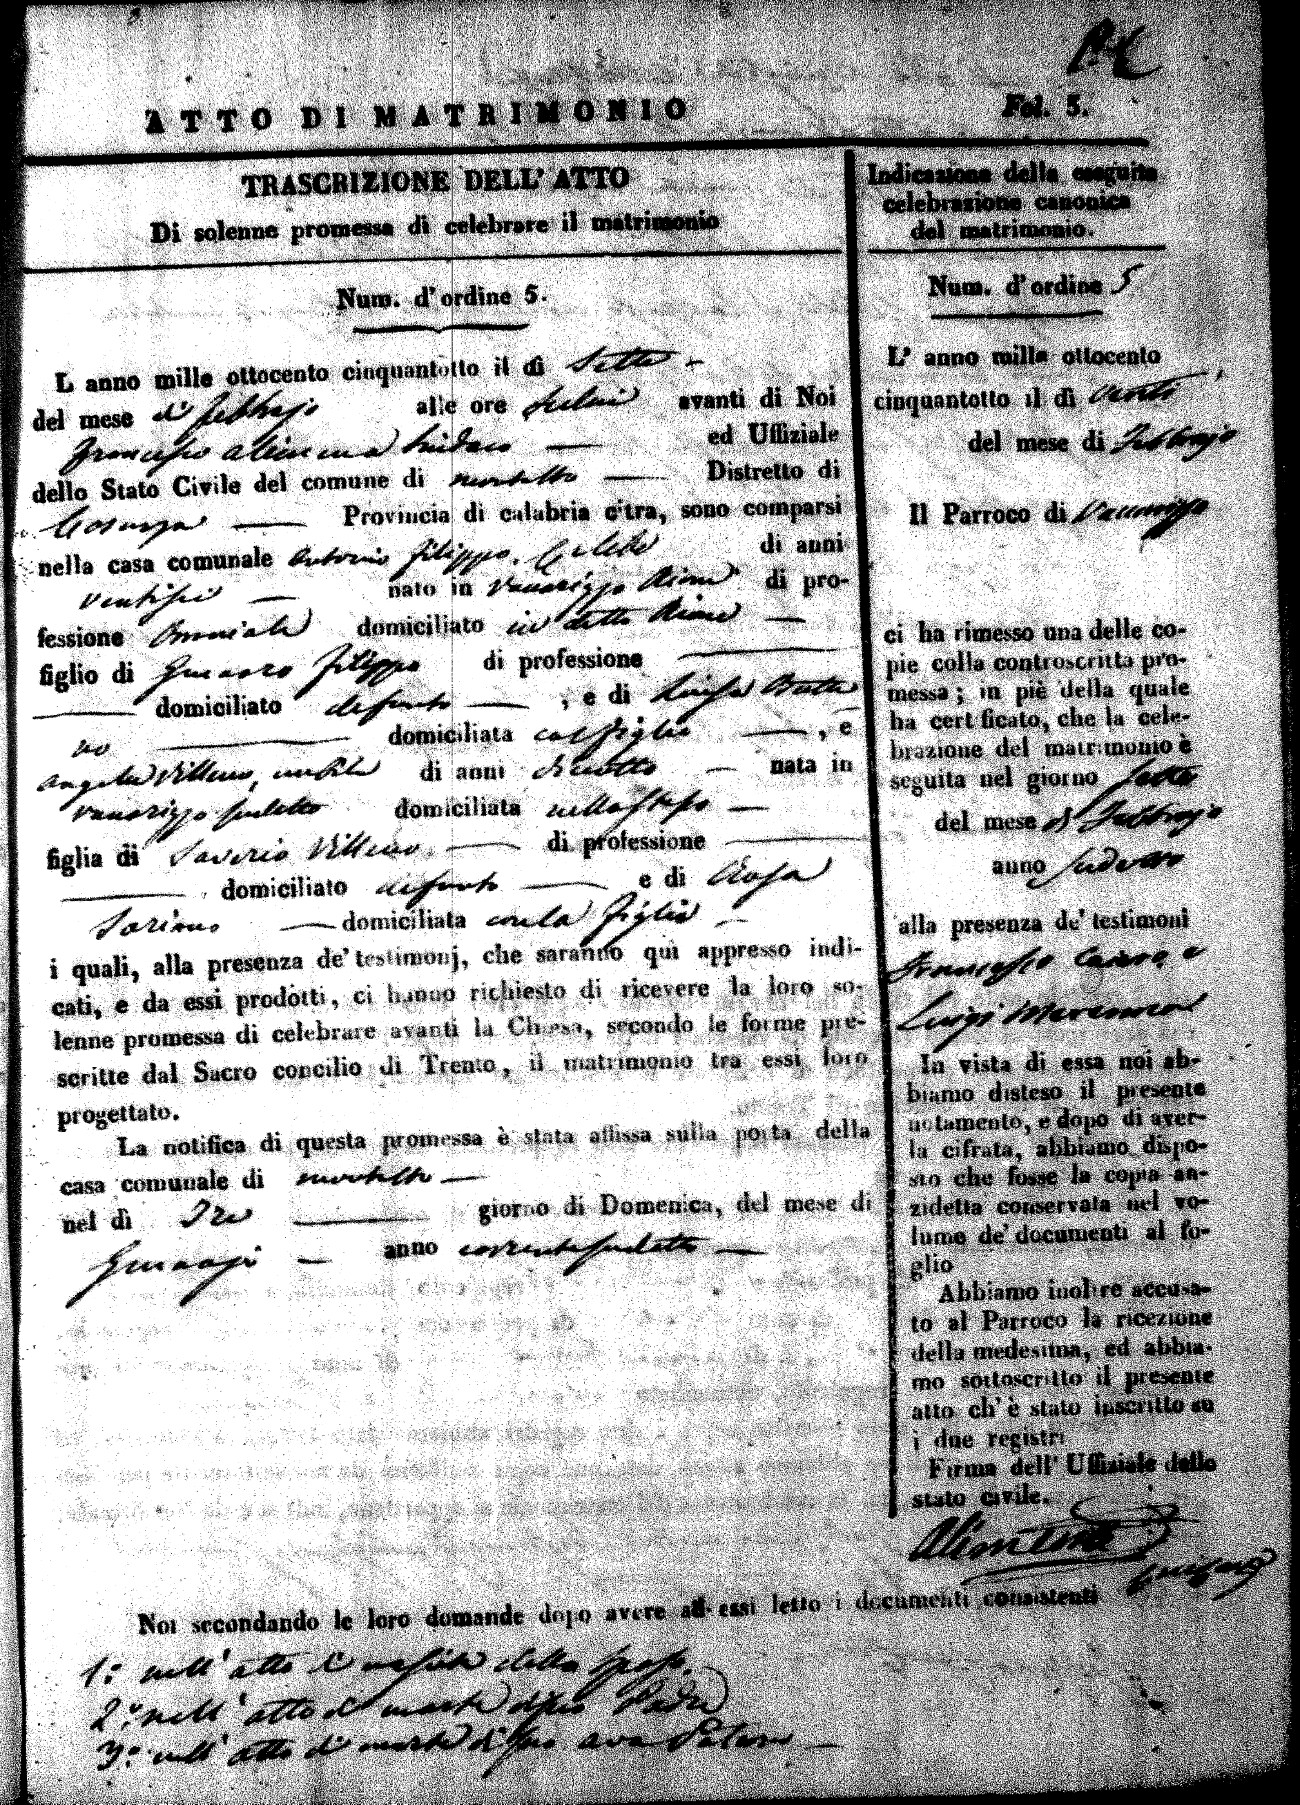 ATTO DI MATRIMONIO
Fol. 5.
TRASCRIZIONE DELL' ATTO
Di solenne promessa di celebrare il matrimonio
Num. d'ordine 5.
L anno mille ottocento cinquantotto il dì Sette
del mese di febbrajo alle ore avanti di Noi
Francesco Sindaco ed Uffiziale
dello Stato Civile del comune di Distretto di
Cosenza Provincia di calabria citra, sono comparsi
nella casa comunale Antonio Filippo Celebe di anni
ventisei nato in Vaccarizzo di pro-
fessione domiciliato in detto
figlio di Gennaro Filippo di professione
domiciliato defunto , e di Luisa
no domiciliata col figlio , e
Angela nubile di anni dieciotto nata in
Vaccarizzo sudetto domiciliata nello stesso
figlia di Saverio di professione
domiciliato defunto e di Rosa
domiciliata con la figlia
i quali, alla presenza de' testimonj, che saranno qui appresso indi-
cati, e da essi prodotti, ci hanno richiesto di ricevere la loro so-
lenne promessa di celebrare avanti la Chiesa, secondo le forme pre-
scritte dal Sacro concilio di Trento, il matrimonio tra essi loro
progettato.
La notifica di questa promessa è stata affissa sulla porta della
casa comunale di
nel dì Tre giorno di Domenica, del mese di
Gennajo anno corrente sudetto
Noi secondando le loro domande dopo avere ad essi letto i documenti consistenti
1.° nell' atto di nascita dello sposo
2.° nell' atto di morte di suo Padre
3.° nell' atto di morte di suo avo Paterno
Indicazione della eseguita
celebrazione canonica
del matrimonio.
Num. d'ordine 5
L' anno mille ottocento
cinquantotto il dì venti
del mese di Febbrajo
Il Parroco di Vaccarizzo
ci ha rimesso una delle co-
pie colla controscritta pro-
messa; in piè della quale
ha certificato, che la cele-
brazione del matrimonio è
seguita nel giorno sette
del mese di Febbrajo
anno sudetto
alla presenza de' testimoni
Francesco e
Luigi
In vista di essa noi ab-
biamo disteso il presente
notamento, e dopo di aver-
la cifrata, abbiamo dispo-
sto che fosse la copia an-
zidetta conservata nel vo-
lume de' documenti al fo-
glio
Abbiamo inoltre accusa-
to al Parroco la ricezione
della medesima, ed abbia-
mo sottoscritto il presente
atto ch' è stato inscritto su
i due registri
Firma dell' Uffiziale dello
stato civile.